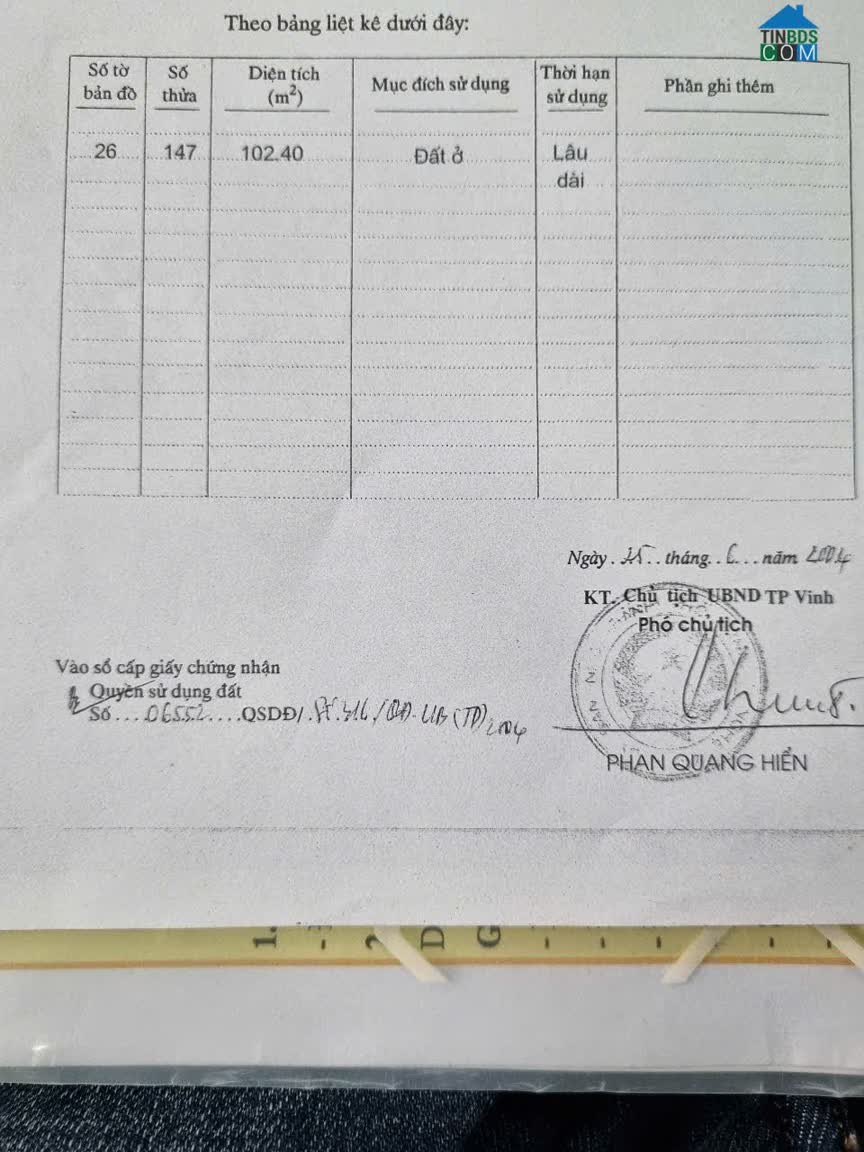 Theo bảng liệt kê dưới đây:
TINBDS
COM
Số tờ bản đồ
Số thửa
Diện tích (m²)
Mục đích sử dụng
Thời hạn sử dụng
Phần ghi thêm
26 147 102.40 Đất ở Lâu dài
Ngày 25 tháng 6 năm 2004
KT. Chủ tịch UBND TP Vinh
Phó chủ tịch
Vào sổ cấp giấy chứng nhận
Quyền sử dụng đất
Số 06552 QSDĐ/ 2004
PHAN QUANG HIỂN
1.
-
D
G